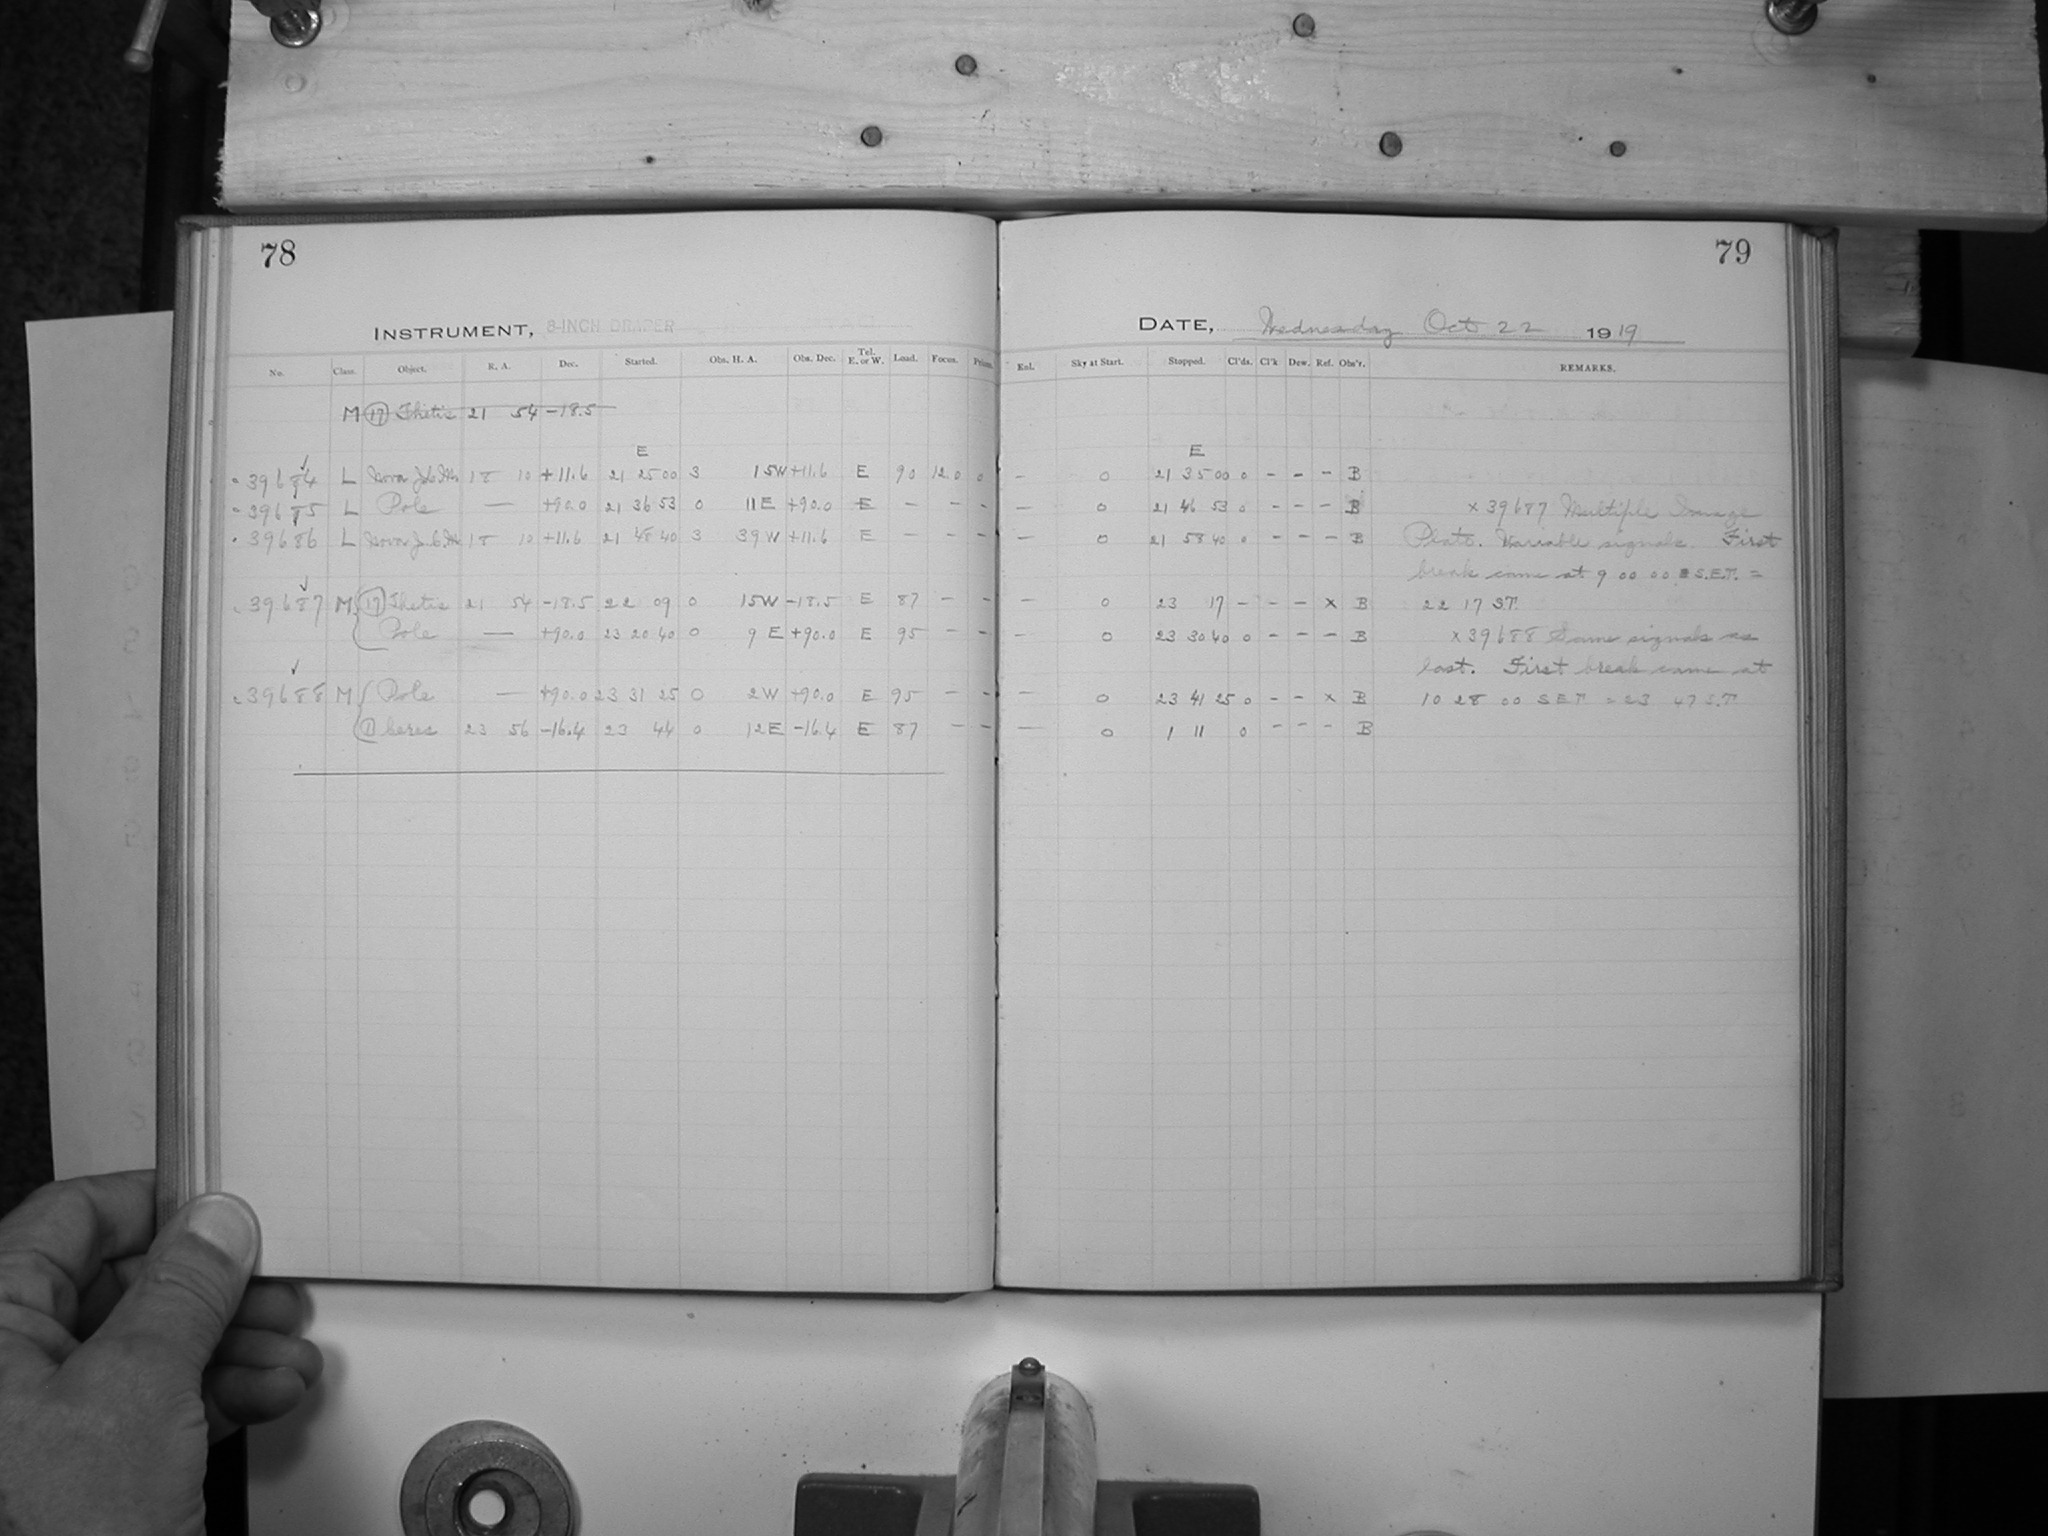 78
INSTRUMENT, 8-INCH DRAPER
No. Class. Object. R. A. Dec. Started. Obs. H. A. Obs. Dec. Tel. E. or W. Load. Focus. Prism.
M (17) Thetis 21 54 -18.5
E
39684 L Nova 18 10 +11.6 21 25 00 3 15W +11.6 E 90 12.0 0
39685 L Pole — +90.0 21 36 53 0 11E +90.0 E — — -
39686 L Nova 18 10 +11.6 21 48 40 3 39W +11.6 E — — -
39687 M (17) Thetis 21 54 -18.5 22 09 0 15W -18.5 E 87 - -
Pole — +90.0 23 20 40 0 9 E +90.0 E 95 - -
39688 M Pole — +90.0 23 31 25 0 2W +90.0 E 95 - -
(1) Ceres 23 56 -16.4 23 44 0 12E -16.4 E 87 - -
79
DATE, Wednesday Oct 22 1919
Enl. Sky at Start. Stopped. Cl'ds. Cl'k Dew. Ref. Obs'r. REMARKS.
E
- 0 21 35 00 0 - - - B
- 0 21 46 53 0 - - - B x 39687 Multiple Image
- 0 21 58 40 0 - - - B Plate. Variable signals. First
break came at 9 00 00 S.E.T. =
- 0 23 17 - - - x B 22 17 S.T.
- 0 23 30 40 0 - - - B x 39688 Same signals as
last. First break came at
- 0 23 41 25 0 - - x B 10 28 00 S E T = 23 47 S.T
- 0 1 11 0 - - - B